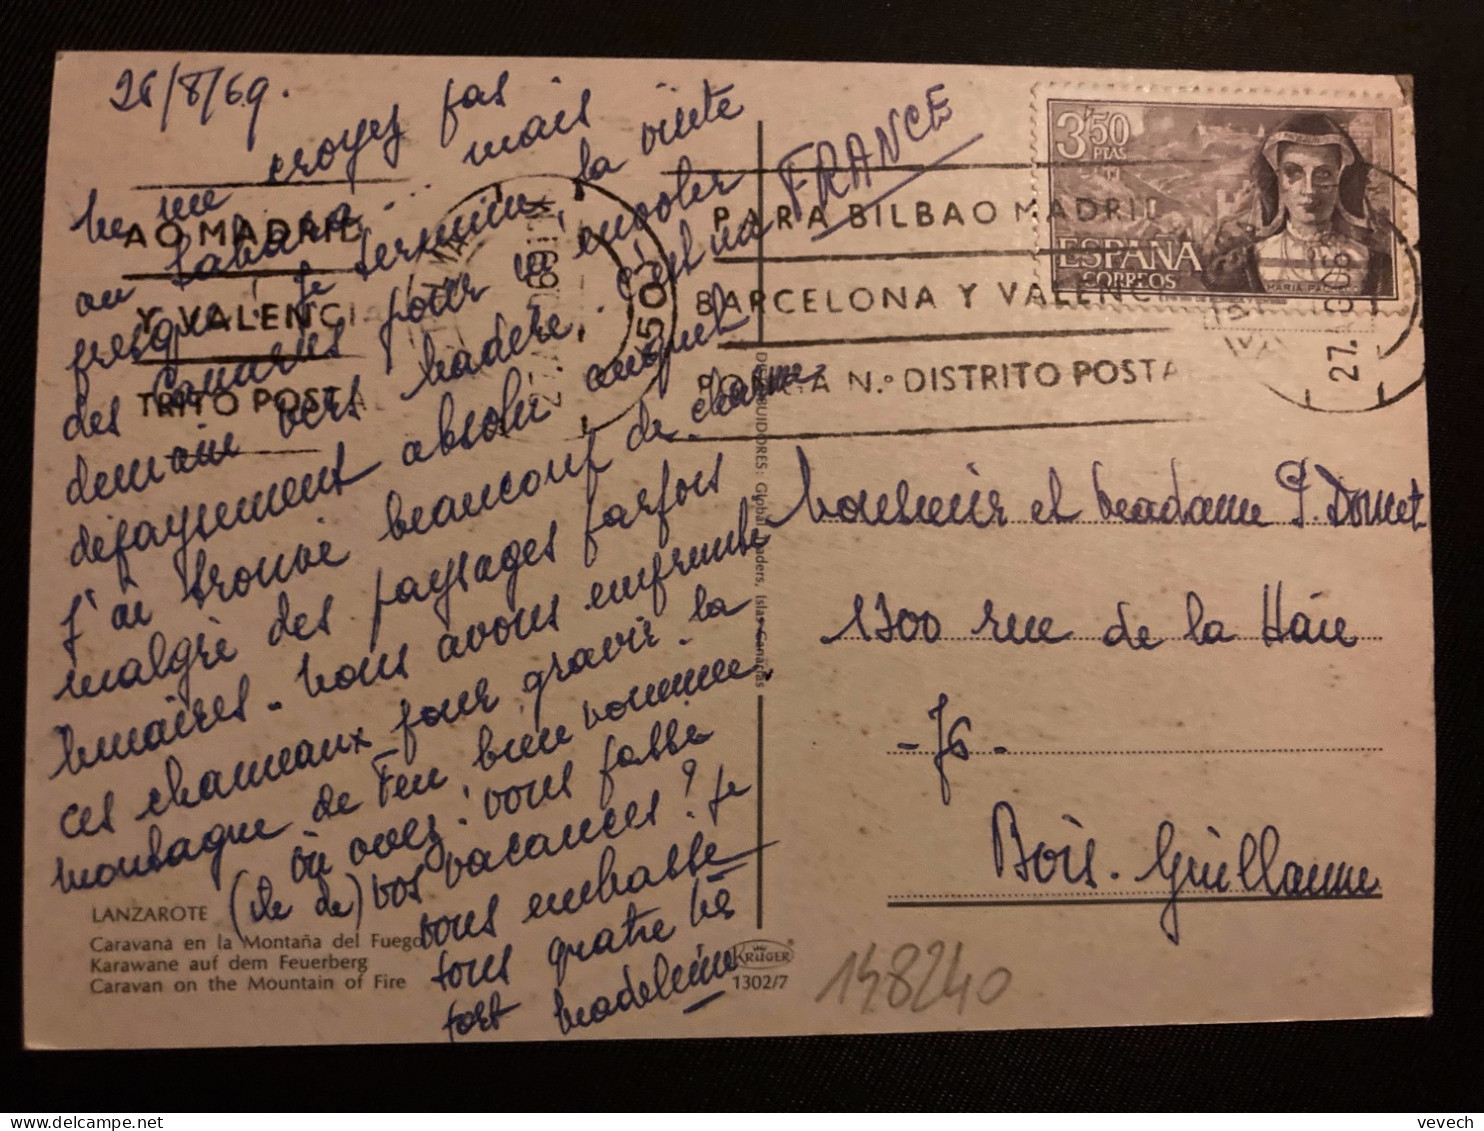 26/8/69.
Ne me croyez pas
au Sahara... mais
presque! Je termine la visite
des Canaries pour m'envoler
demain vers Madère. C'est un
dépaysement absolu auquel
j'ai trouvé beaucoup de charme
malgré des paysages parfois
lunaires. Nous avons emprunté
ces chameaux pour gravir la
montagne de Feu bien nommée.
où avez-vous passé
(île de) vos vacances? Je
vous embrasse
tous quatre très
fort Madeleine
LANZAROTE
Caravana en la Montaña del Fuego
Karawane auf dem Feuerberg
Caravan on the Mountain of Fire
AO MADRID
Y VALENCIA
TRITO POSTAL
DISTRIBUIDORES: Global Traders, Islas Canarias
KRÜGER
1302/7
FRANCE
PARA BILBAO MADRID
BARCELONA Y VALENCIA
PONGA N.º DISTRITO POSTAL
3'50
PTAS
ESPAÑA
CORREOS
MARIA PACHECO
27.
Monsieur et Madame P. Doucet
1300 rue de la Haie
-76-
Bois-Guillaume
148240
vevech | Delcampe.net